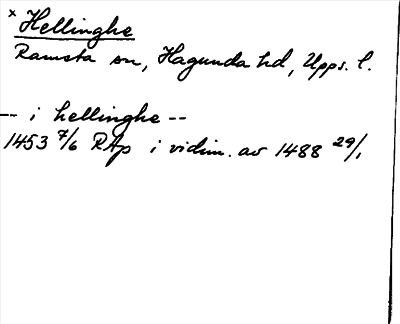 × Hellinghe
Ramsta sn, Hagunda hd, Upps. l.
-- i hellinghe --
1453 7/6 RAp i vidim. av 1488 29/1